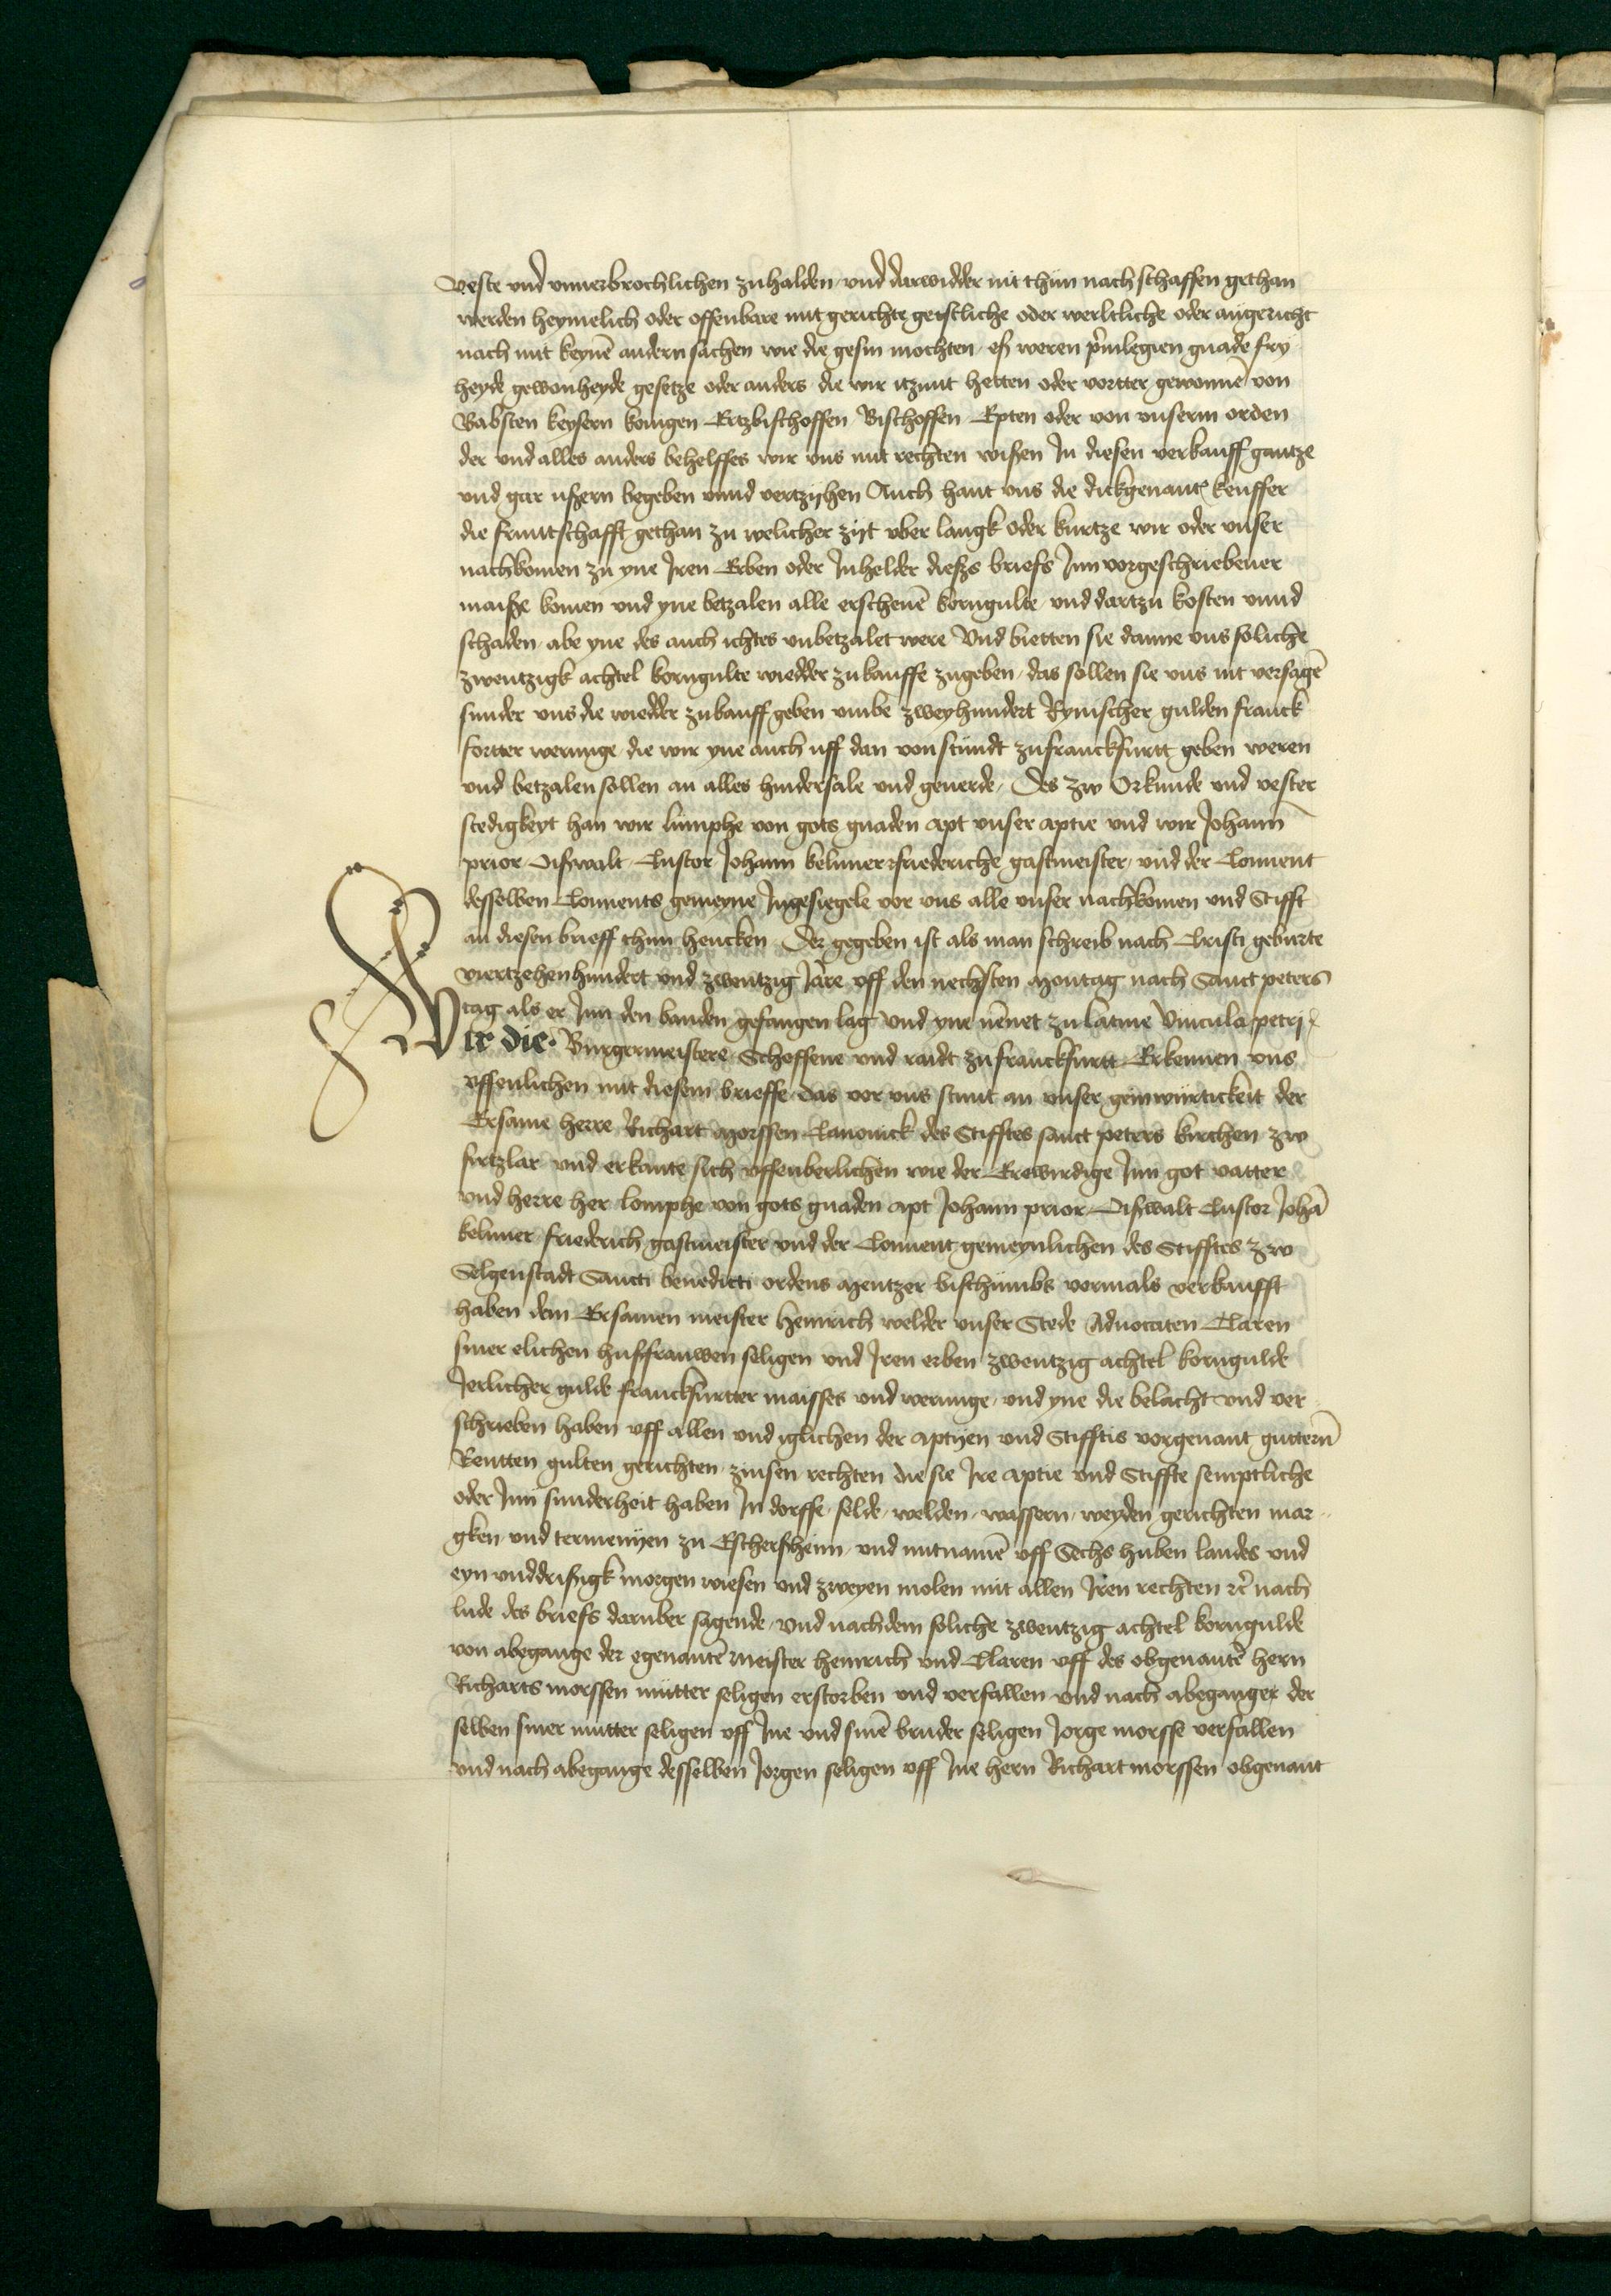 veste und vnuerbrochlichen zuhalden und darwidder nit thun nach schaffen gethan
werden heymelich oder offenbare mit gerichte geistliche oder werltliche oder angericht
nach mit keynē andern sachen wie die gesin mochten eß weren p̄uilegien gnade fry
heyde gewonheyde gesetze oder anders die wir itzunt hetten oder vortter gewonnē von
Babsten keysern konigen Ertzbischoffen Bischoffen Epten oder von vnserm orden
der und alles anders behelffes wir vns mit rechten wißen In diesen verkauff gantze
und gar ußern begeben vnnd vertzyhen Auch hant vns die dickgenant keuffer
die fruntschafft gethan zu welicher zijt vber langk oder kurtze wir oder vnser
nachkomen zu yne Iren Erben oder Inhelder diesßs briefs Inn vorgeschriebener
maiße komen und yne betzalen alle erschenē korngulte und dartzu kosten vnnd
schaden abe yne des auch ichtes vnbetzalet were Und bietten sie danne vns soliche
zwentzigk achtel korngulte wiedder zukauffe zugeben das sollen sie vns nit versagē
sunder vns die wiedder zukauff geben vmbe zweyhundert Rynischer gulden franck
fortter werunge die wir yne auch uff dan von stundt zufranckfurtt geben weren
und betzalen sollen an alles hindersale und geuerde Des zw Orkunde und vester
stedigkeyt han wir lumphe von gots gnaden apt vnser aptie und wir Johann
prior Oißwalt Custor Johann kelnner friederiche gastmeister und der Conuent
desselben Conuents gemeyne Ingesiegele vor vns alle vnser nachkomen und Stifft
an diesen brieff thun hencken Der gegeben ist als man schreib nach Cristi geburte
viertzehenhundert und zwentzig Jare vff den nechsten montag nach Sanct peters
tag als er Inn den banden gefangen lag und yne nēnet zu latine Vincula petri
Wir die Burgermeistere Scheffene und raidt zufranckfurtt Erkennen vns
vffenlichen mit diesem brieffe das vor vns stunt an vnser geinwurtickeit der
Ersame herre Richart morssen Canonick des Stifftes sanct peters kirchen zw
fritzlar und erkante sich vffenberlichen wie der Erewirdige Inn got vatter
und herre her lomphe von gots gnaden apt Johann prior Oißwalt Custor Johā
kelnner friederich gastmeister und der Conuent gemeynlichen des Stifftes zw
Selgenstadt Sancti benedicti ordens mentzer bischtumbs vormals verkaufft
haben dem Ersamen meister Heinrich welder vnser Stede Aduocaten Claren
siner elichen hußfrauwen seligen und Iren erben zwentzig achtel korngulde
Jerlicher gulde franckfurtter maisses und werunge und yne die belacht und ver
schrieben haben vff allen und iglichen der aptyen und Stifftis vorgenant guttern
Rentten gulten gerichten zinsen rechten die sie Ire aptie und Stiffte semptliche
oder Inn sunderheit haben In dorffe felde welden wassern weyden gerichten mar
gken und termenyen zu Eschersheim und mitnamē vff Sechs huben landes und
eyn vnddrißigk morgen wiesen und zweyen molen mit allen Iren rechten ꝛc̄ nach
lude des briefs daruber sagende und nachdem soliche zwentzig achtel korngulde
von abegange der egenantē meister heinrich und Claren vff des obgenantē hern
Richarts morssen mutter seligen erstorben und verfallen und nach abegange der
selben siner mutter seligen vff Ine und sinē bruder seligen Jorge morsse verfallen
und nach abegange desselben Jorgen seligen vff Ine hern Richart morssen obgenant